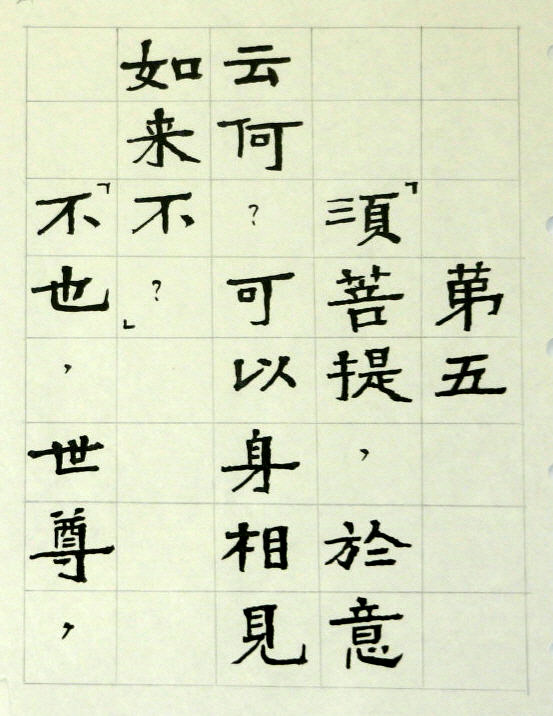 第五
「須菩提，於意
云何？可以身相見
如来不？」
「不也，世尊，